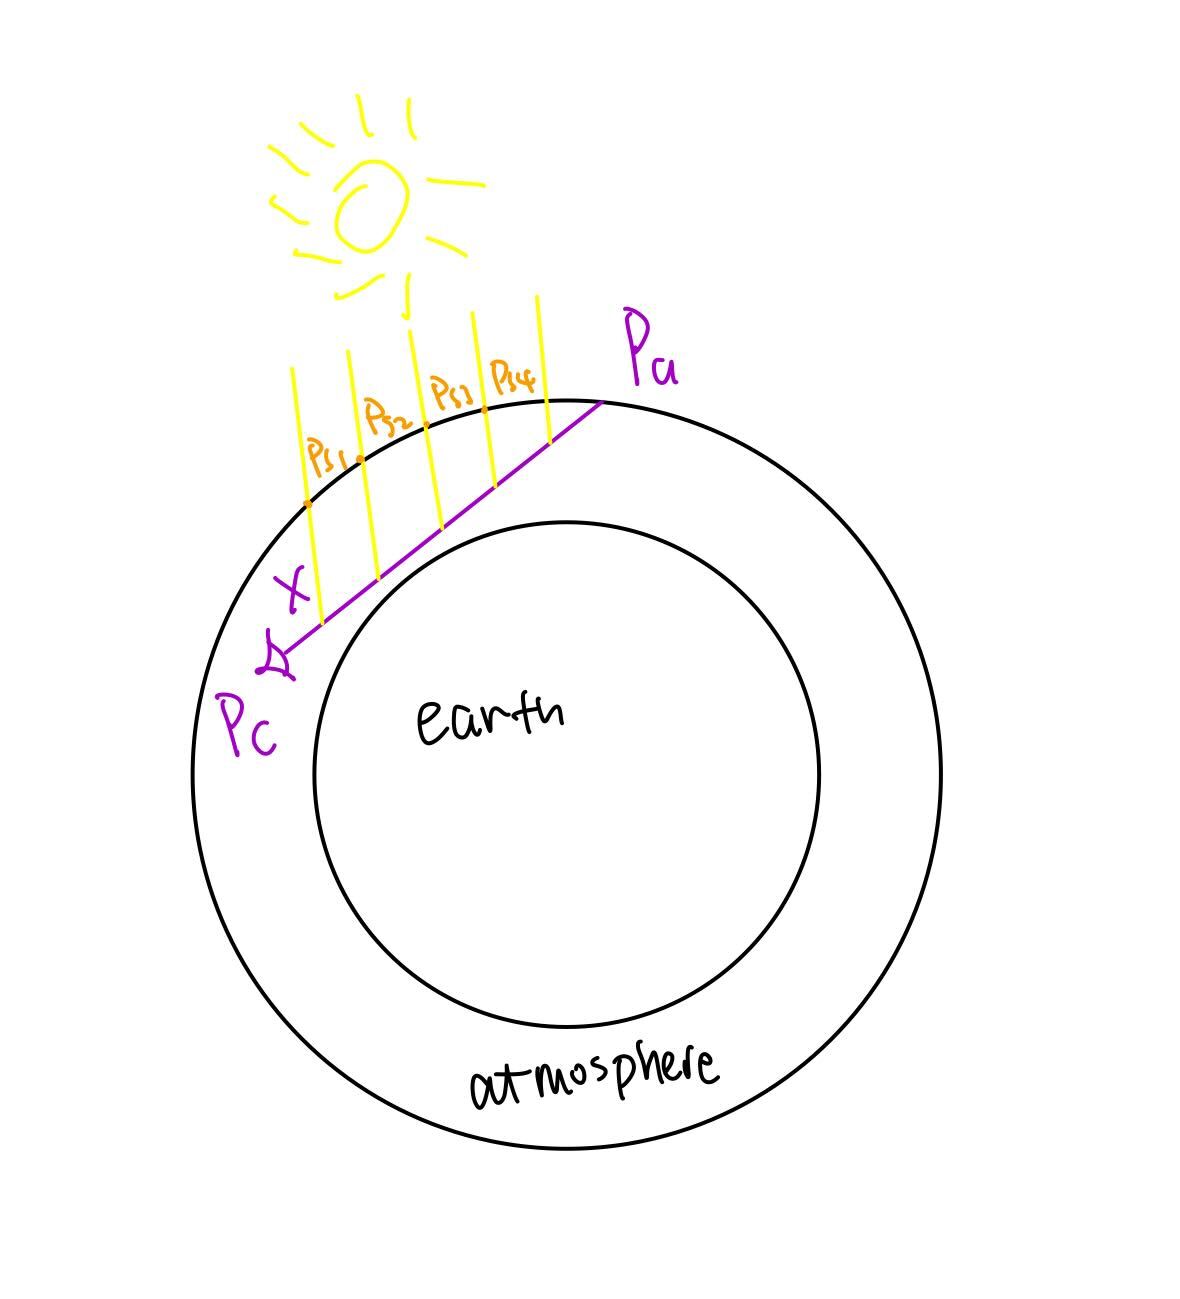 Pa
Ps4
Ps3
Ps2
Ps1
X
Pc
earth
atmosphere